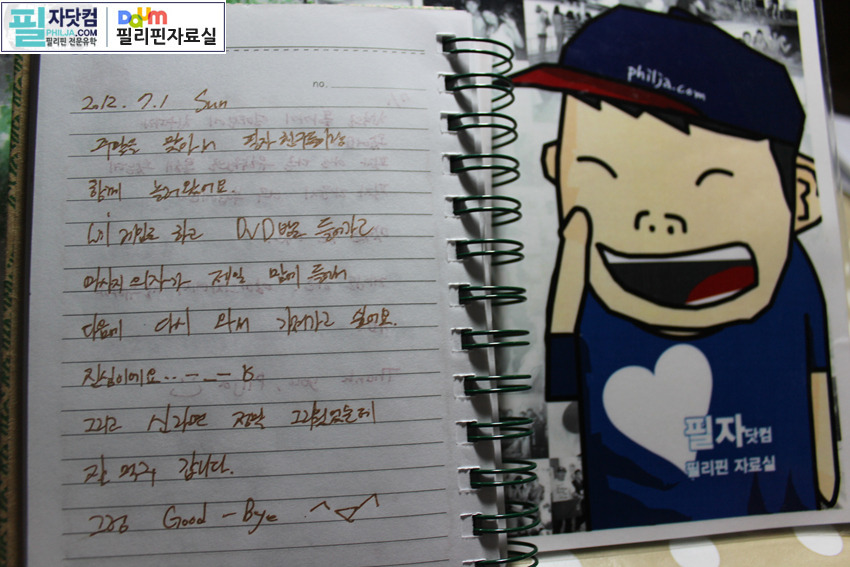 필자닷컴
PHILJA.COM
필리핀 전문유학
Daum
필리핀자료실
no.
2012. 7. 1 Sun
주말을 맞아서 필자 친구들이랑
함께 놀러왔어요.
Wii 게임도 하고 DVD방도 들어가고
마사지 의자가 제일 맘에 들어
다음에 다시 와서 가져가고 싶어요.
진심이에요...
그리고 신라면 정말 그리웠었는데
잘 먹구 갑니다.
그럼 Good - Bye ^^
philja.com
필자닷컴
필리핀 자료실